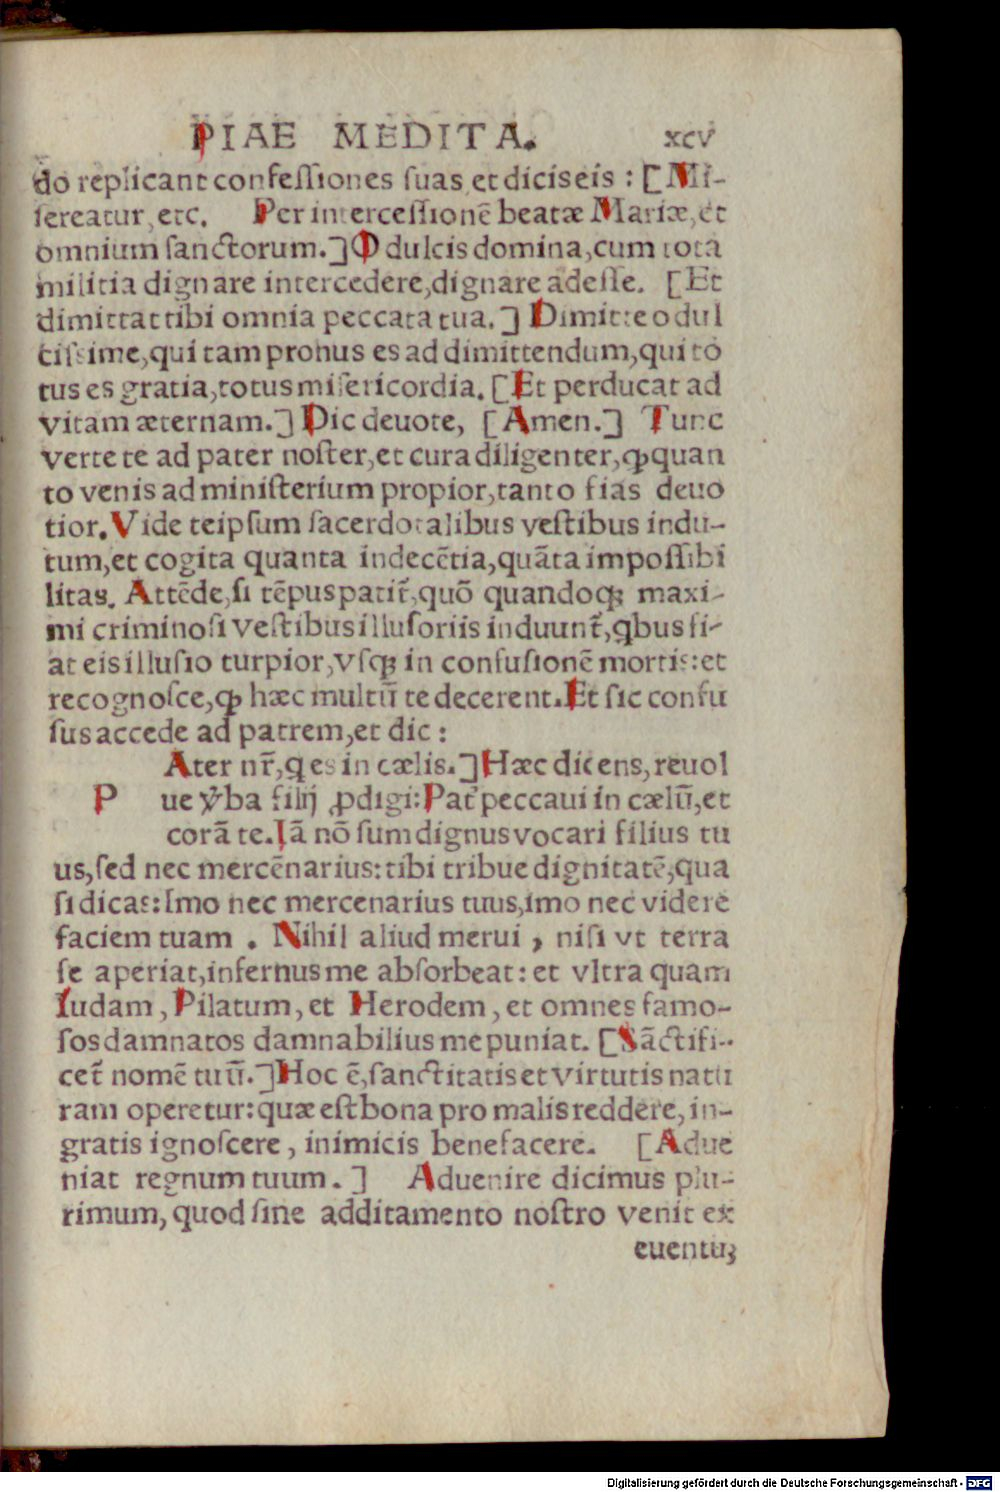 PIAE MEDITA. xcv
do replicant confeſſiones ſuas, et dicis eis : [Mi-
ſereatur, etc. Per interceſſionē beatæ Mariæ, et
omnium ſanctorum.] O dulcis domina, cum tota
militia dignare intercedere, dignare adeſſe. [Et
dimittat tibi omnia peccata tua.] Dimitte o dul
ciſſime, qui tam pronus es ad dimittendum, qui to
tus es gratia, totus miſericordia. [Et perducat ad
vitam æternam.] Dic deuote, [Amen.] Tunc
verte te ad pater noſter, et cura diligenter, ꝙ quan
to venis ad miniſterium propior, tanto fias deuo
tior. Vide teipſum ſacerdotalibus veſtibus indu-
tum, et cogita quanta indecētia, quāta impoſſibi
litas. Attēde, ſi tēpus patit᷑, quō quandoqꝫ maxi-
mi criminoſi veſtibus illuſoriis induunt᷑, qbus fi-
at eis illuſio turpior, vſqꝫ in confuſionē mortis: et
recognoſce, ꝙ hæc multū te decerent. Et ſic confu
ſus accede ad patrem, et dic :
Ater nr̄, q es in cælis.] Hæc dicens, reuol
P ue v̓ba filij ꝓdigi: Pat᷑ peccaui in cælū, et
corā te. Iā nō ſum dignus vocari filius tu
us, ſed nec mercēnarius: tibi tribue dignitatē, qua
ſi dicas: Imo nec mercenarius tuus, imo nec videre
faciem tuam . Nihil aliud merui , niſi vt terra
ſe aperiat, infernus me abſorbeat : et vltra quam
Iudam, Pilatum, et Herodem, et omnes famo-
ſos damnatos damnabilius me puniat. [Sāctifi-
cet᷑ nomē tuū.] Hoc ē, ſanctitatis et virtutis natu
ram operetur: quæ eſt bona pro malis reddere, in-
gratis ignoſcere, inimicis benefacere. [Adue
niat regnum tuum.] Aduenire dicimus plu-
rimum, quod ſine additamento noſtro venit ex
euentuꝫ
Digitalisierung gefördert durch die Deutsche Forschungsgemeinschaft - DFG